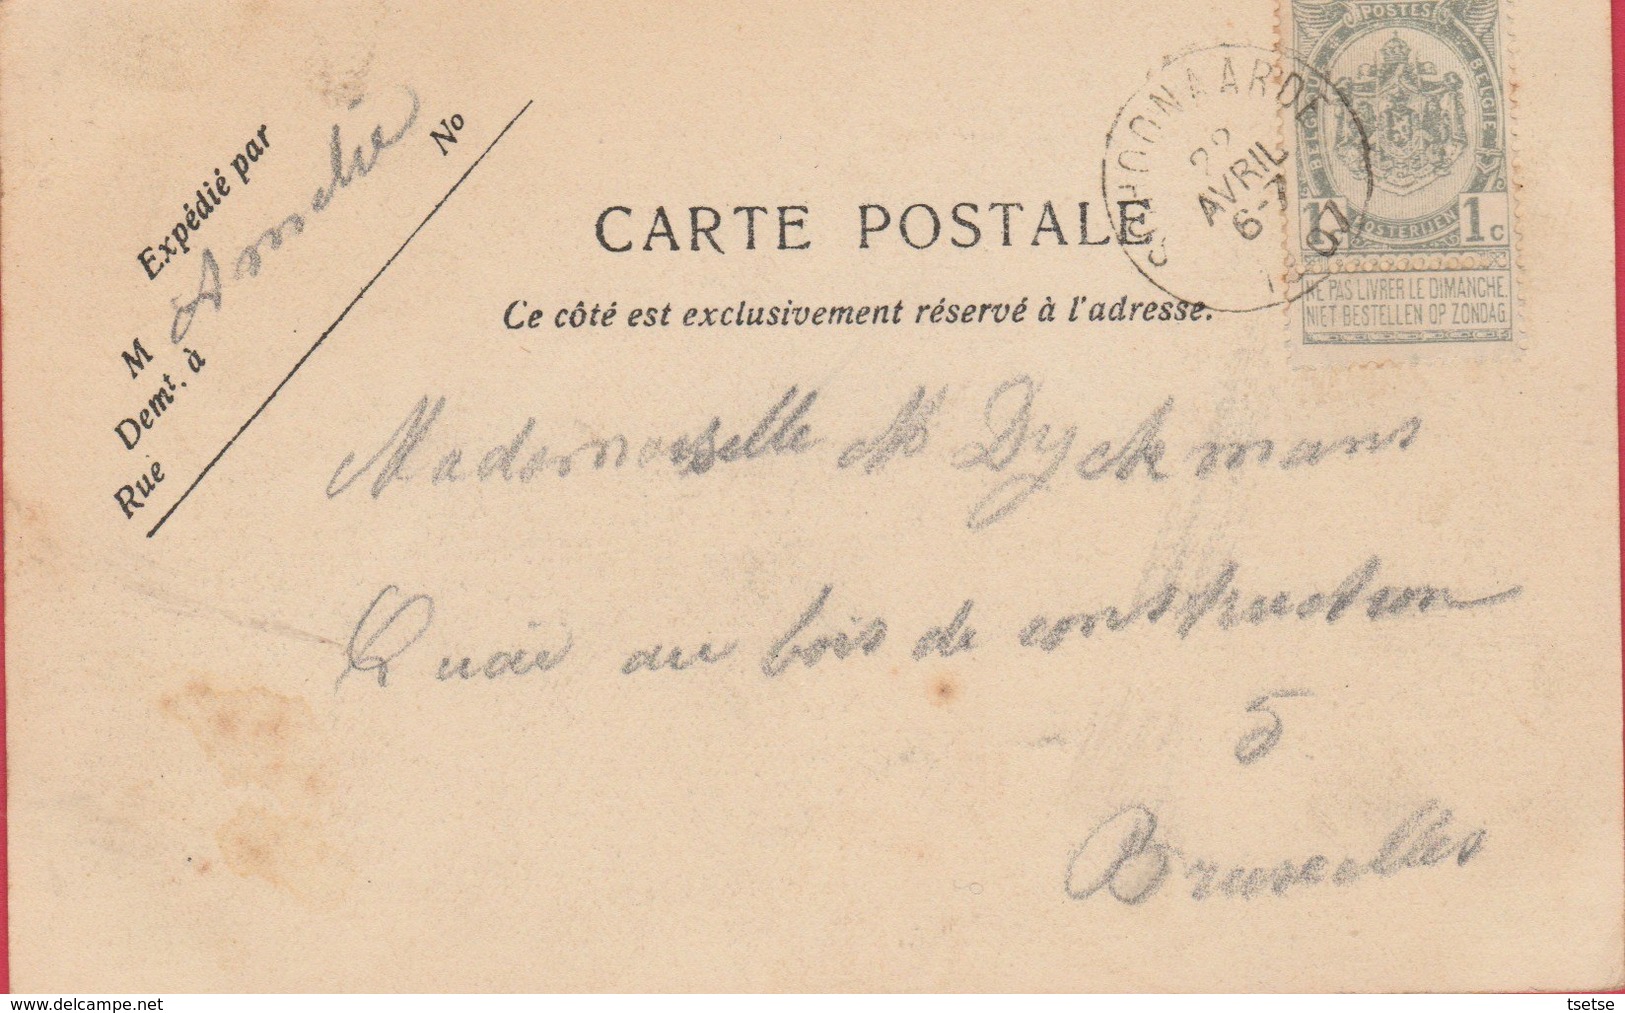 Expédié par
M Amelie
Demt. à
Rue
No
CARTE POSTALE
Ce côté est exclusivement réservé à l'adresse.
SCHOONAARDE
22
AVRIL
6-7
POSTES
BELGIQUE
BELGIË
POSTERIJEN
1c
NE PAS LIVRER LE DIMANCHE.
NIET BESTELLEN OP ZONDAG.
Mademoiselle M Dyckmans
Quai au bois de construction
5
Bruxelles
www.delcampe.net
tsetse